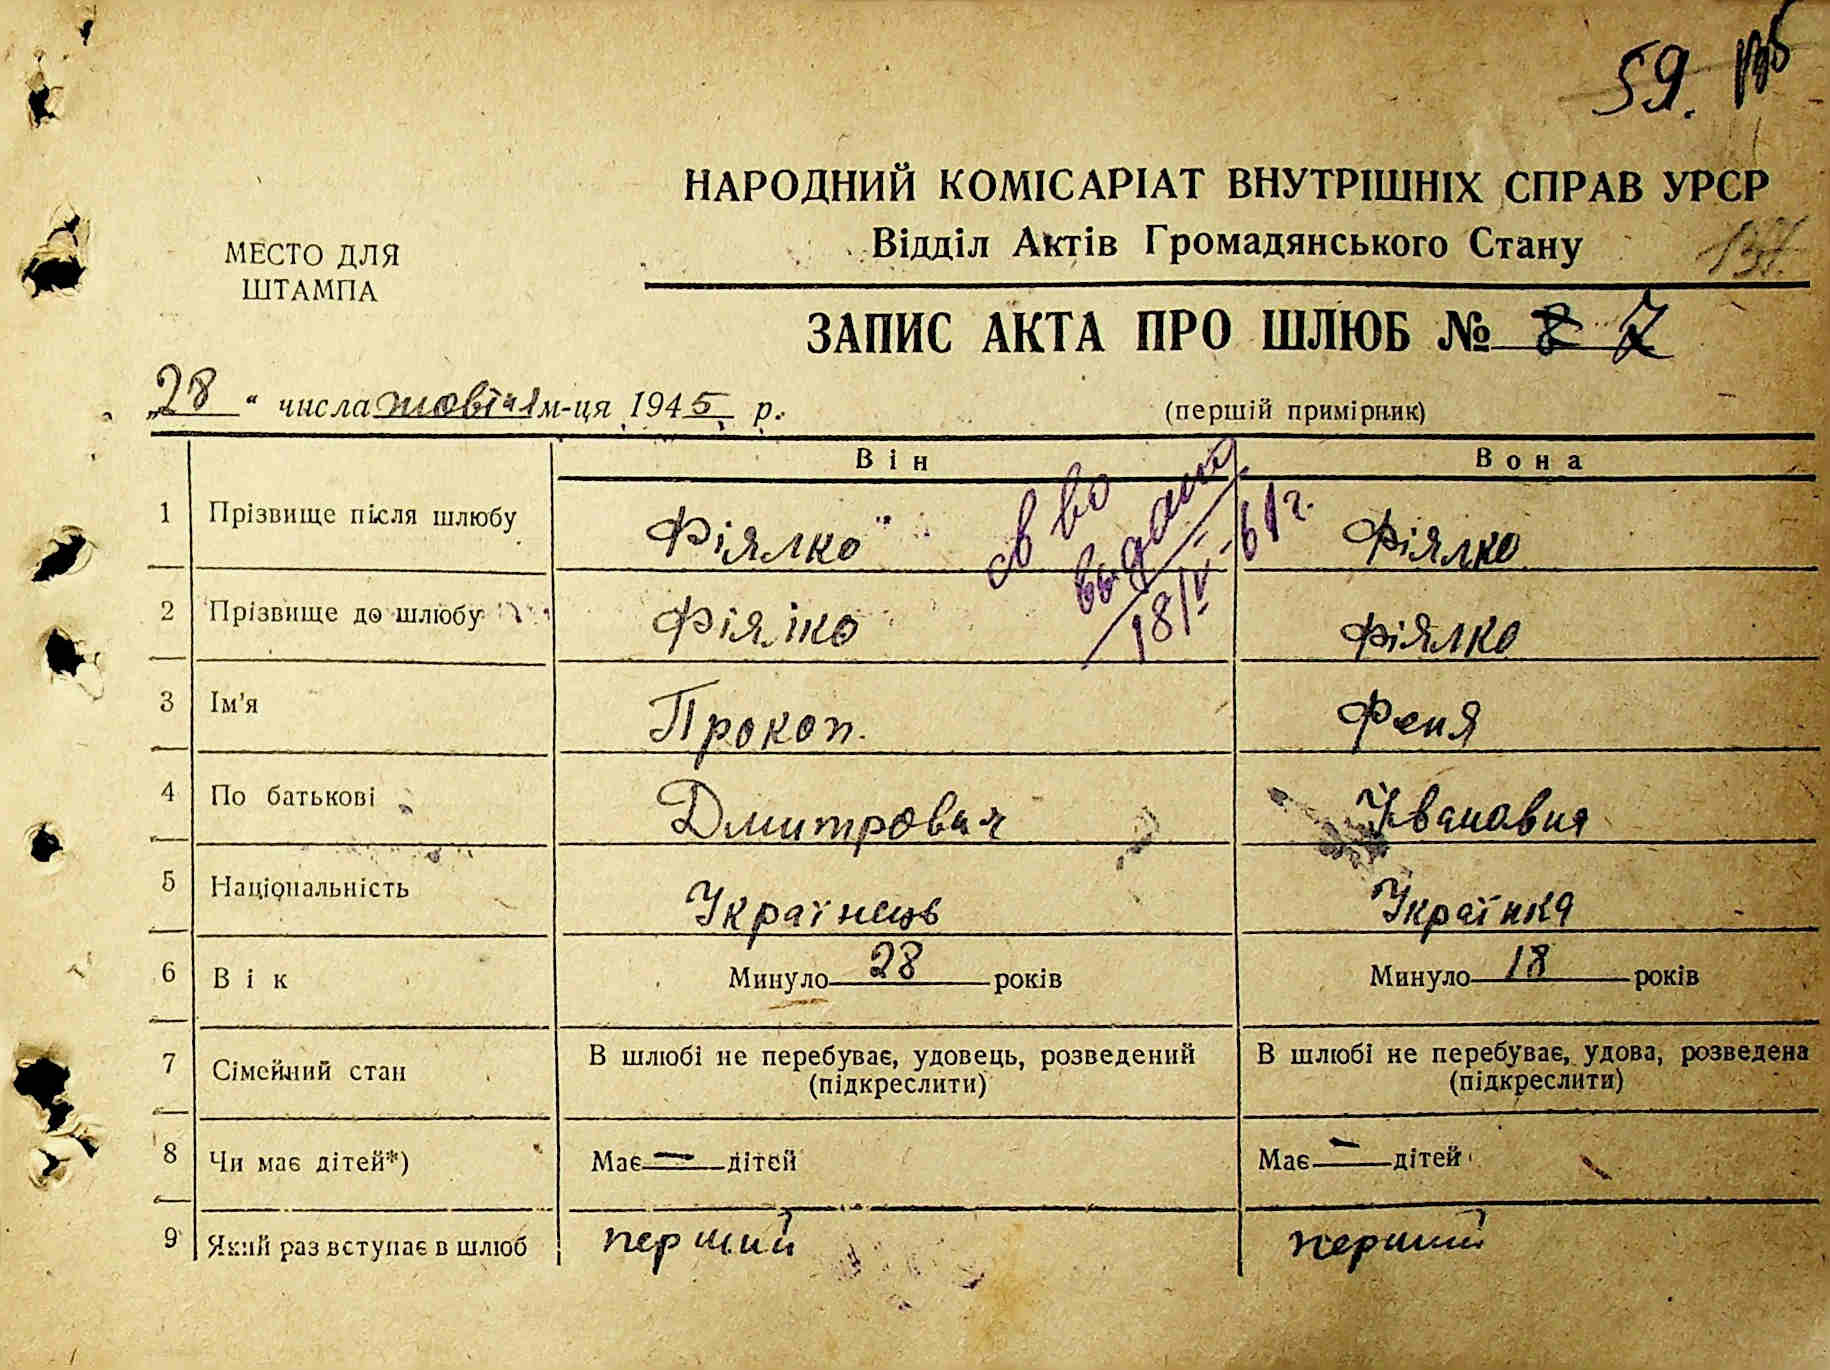 59.
НАРОДНИЙ КОМІСАРІАТ ВНУТРІШНІХ СПРАВ УРСР
Відділ Актів Громадянського Стану
137.
МЕСТО ДЛЯ
ШТАМПА
ЗАПИС АКТА ПРО ШЛЮБ № 8 7
„28“ числа жовтня м-ця 1945 р.
(першій примірник)
Він Вона
1 Прізвище після шлюбу Фіялко Фіялко
св во
выдано
18/IV-61 г.
2 Прізвище до шлюбу Фіялко Фіялко
3 Ім'я Прокоп. Феня
4 По батькові Дмитрович Івановна
5 Національність Українець Українка
6 Вік Минуло 28 років Минуло 18 років
7 Сімейний стан В шлюбі не перебуває, удовець, розведений (підкреслити) В шлюбі не перебуває, удова, розведена (підкреслити)
8 Чи має дітей*) Має — дітей Має — дітей
9 Який раз вступає в шлюб перший перший